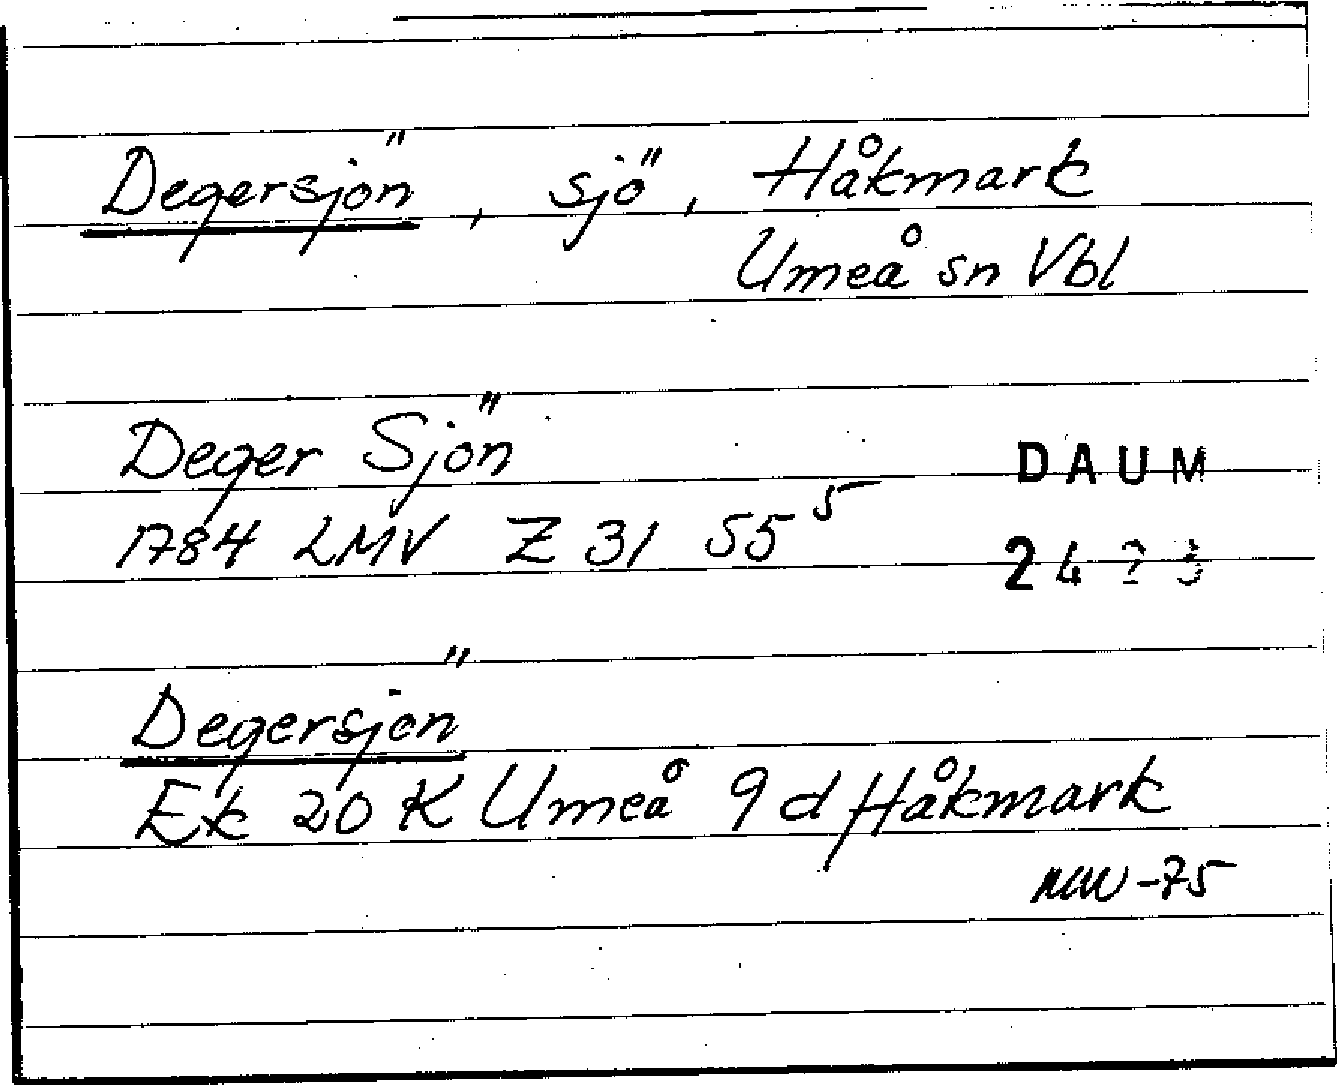 Degersjön, sjö, Håkmark
Umeå sn Vbl
Deger Sjön
DAUM
1784 LMV Z 31 55⁵
Degersjön
Ek 20 K Umeå 9 d Håkmark
-75